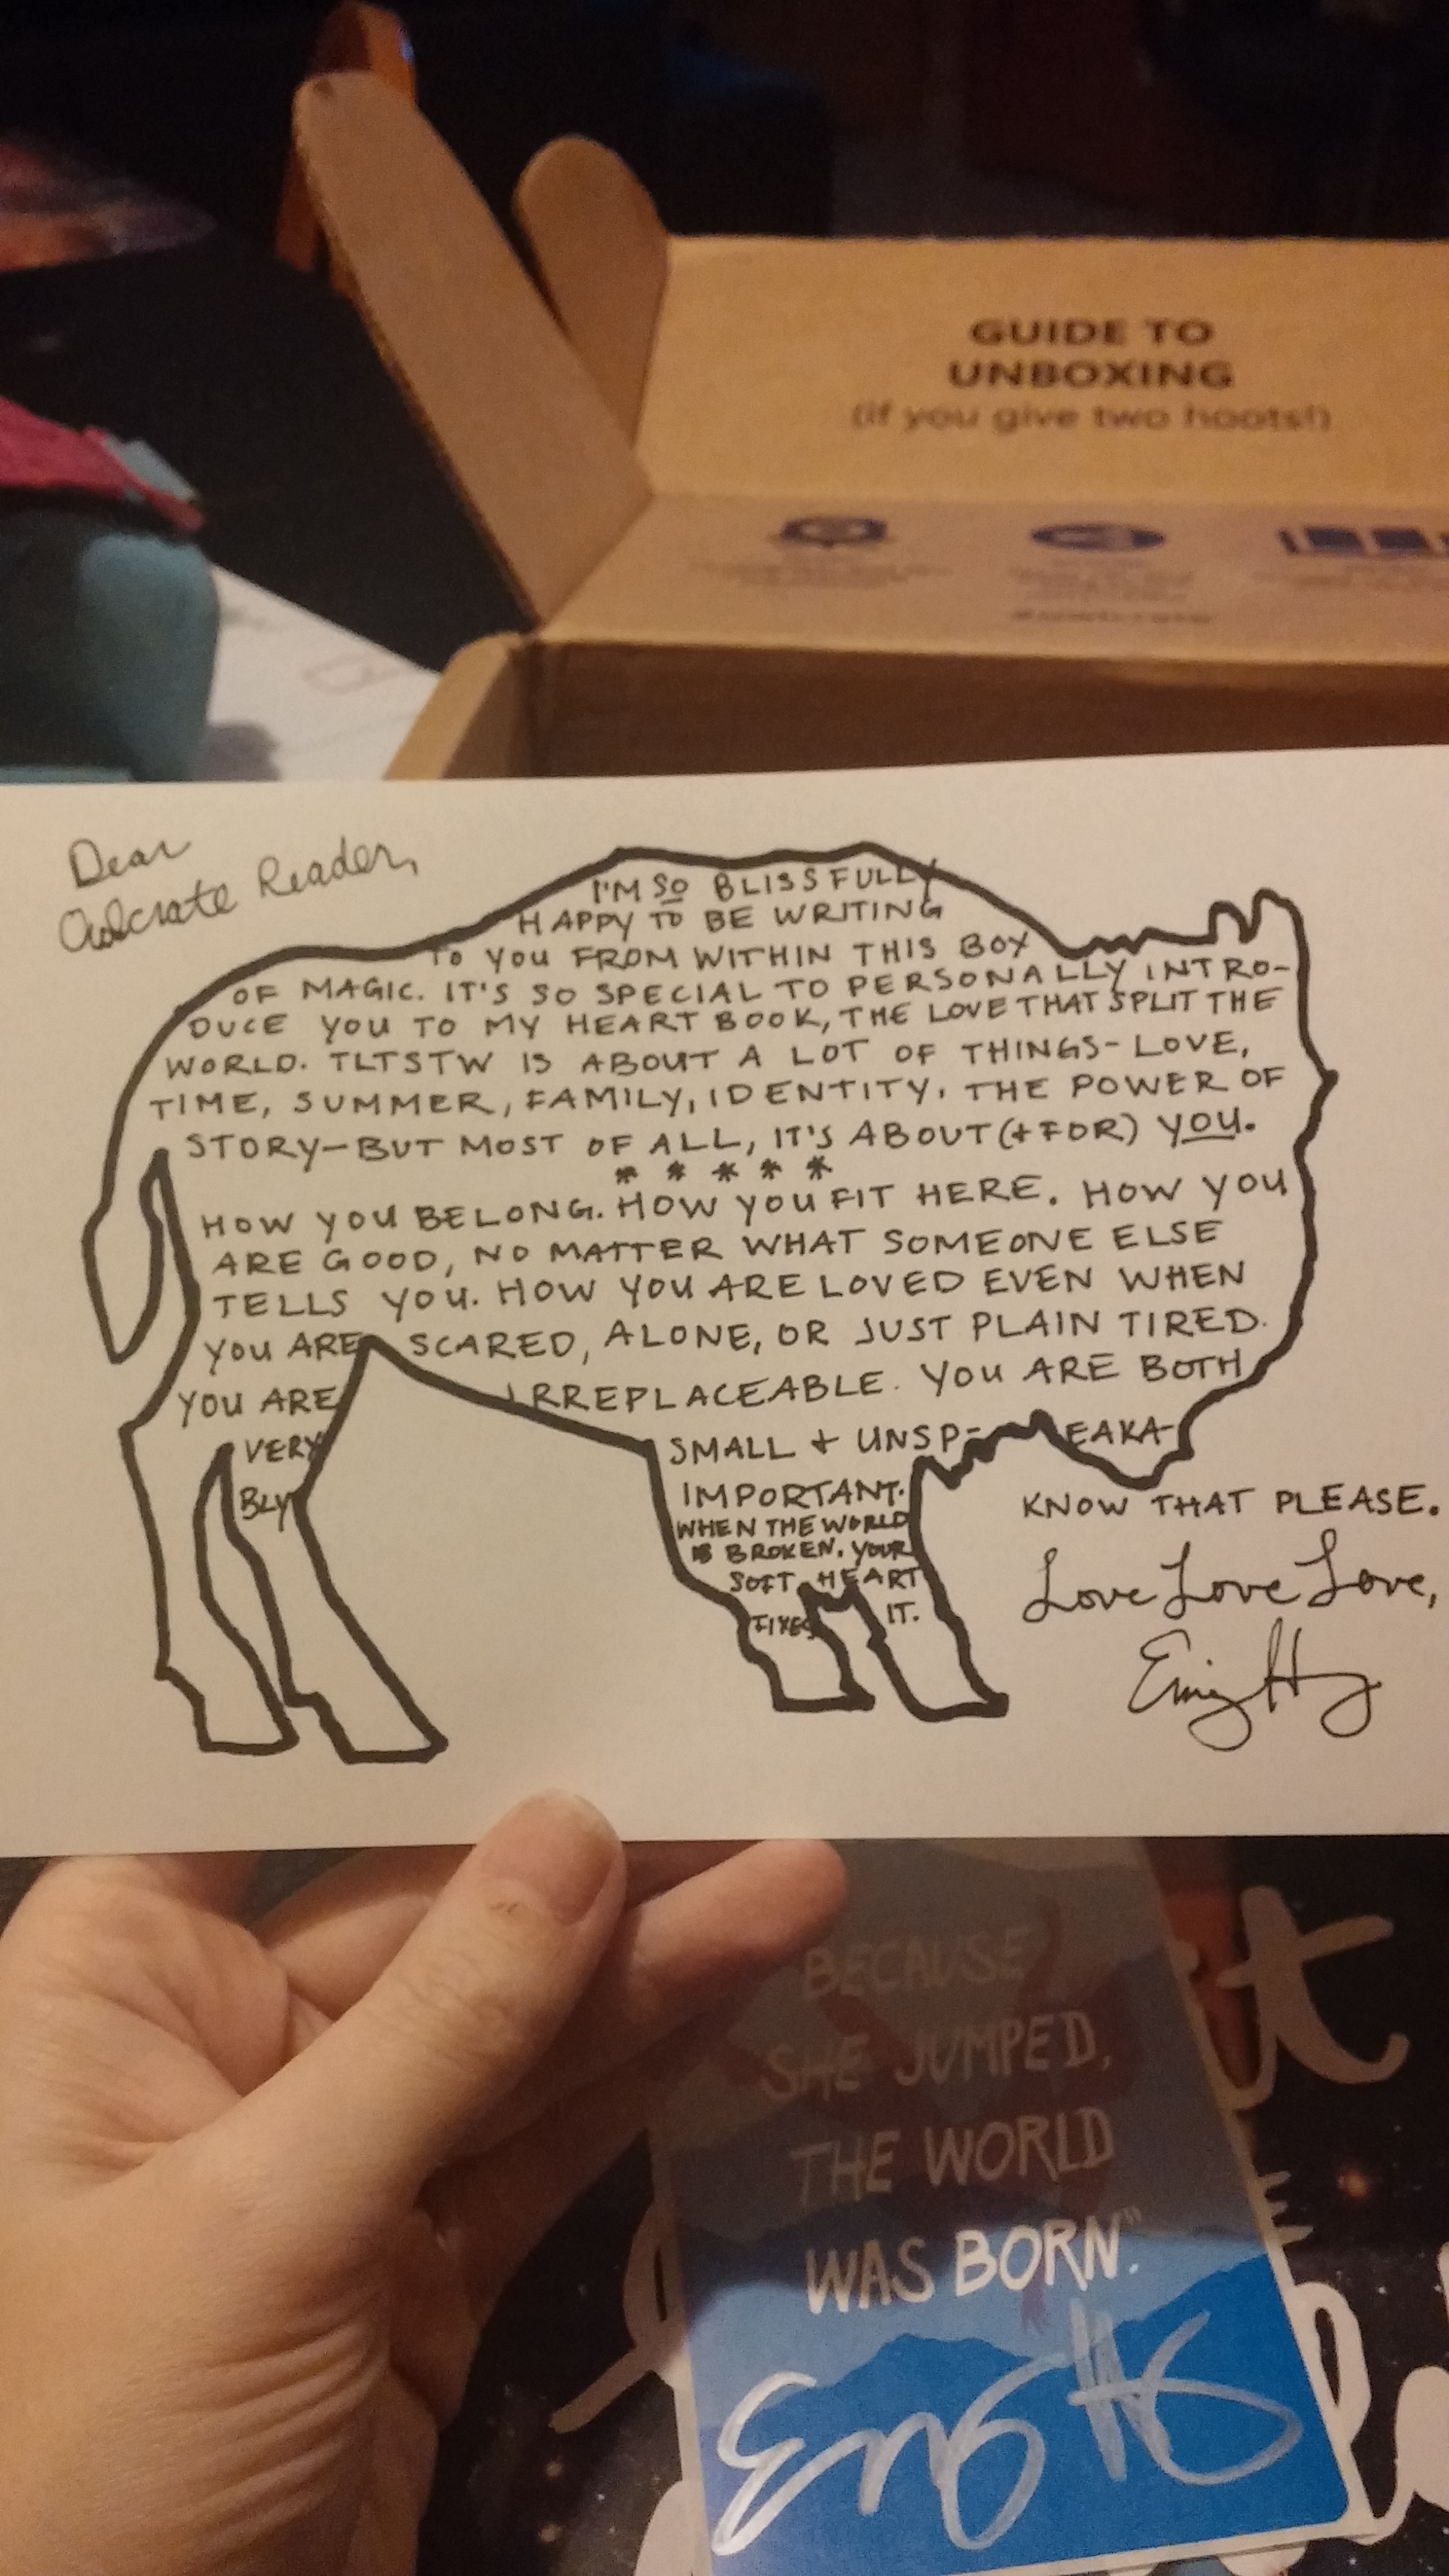 GUIDE TO
UNBOXING
(if you give two hoots!)
Dear
Owlcrate Reader,
I'M SO BLISSFULLY
HAPPY TO BE WRITING
TO YOU FROM WITHIN THIS BOX
OF MAGIC. IT'S SO SPECIAL TO PERSONALLY INTRO-
DUCE YOU TO MY HEART BOOK, THE LOVE THAT SPLIT THE
WORLD. TLTSTW IS ABOUT A LOT OF THINGS-LOVE,
TIME, SUMMER, FAMILY, IDENTITY, THE POWER OF
STORY-BUT MOST OF ALL, IT'S ABOUT (+ FOR) YOU.
* * * * *
HOW YOU BELONG. HOW YOU FIT HERE. HOW YOU
ARE GOOD, NO MATTER WHAT SOMEONE ELSE
TELLS YOU. HOW YOU ARE LOVED EVEN WHEN
YOU ARE SCARED, ALONE, OR JUST PLAIN TIRED.
YOU ARE IRREPLACEABLE. YOU ARE BOTH
VERY SMALL + UNSP- EAKA-
BLY IMPORTANT.
WHEN THE WORLD
IS BROKEN, YOUR
SOFT HEART
FIXES IT.
KNOW THAT PLEASE.
Love Love Love,
BECAUSE
SHE JUMPED,
THE WORLD
WAS BORN."